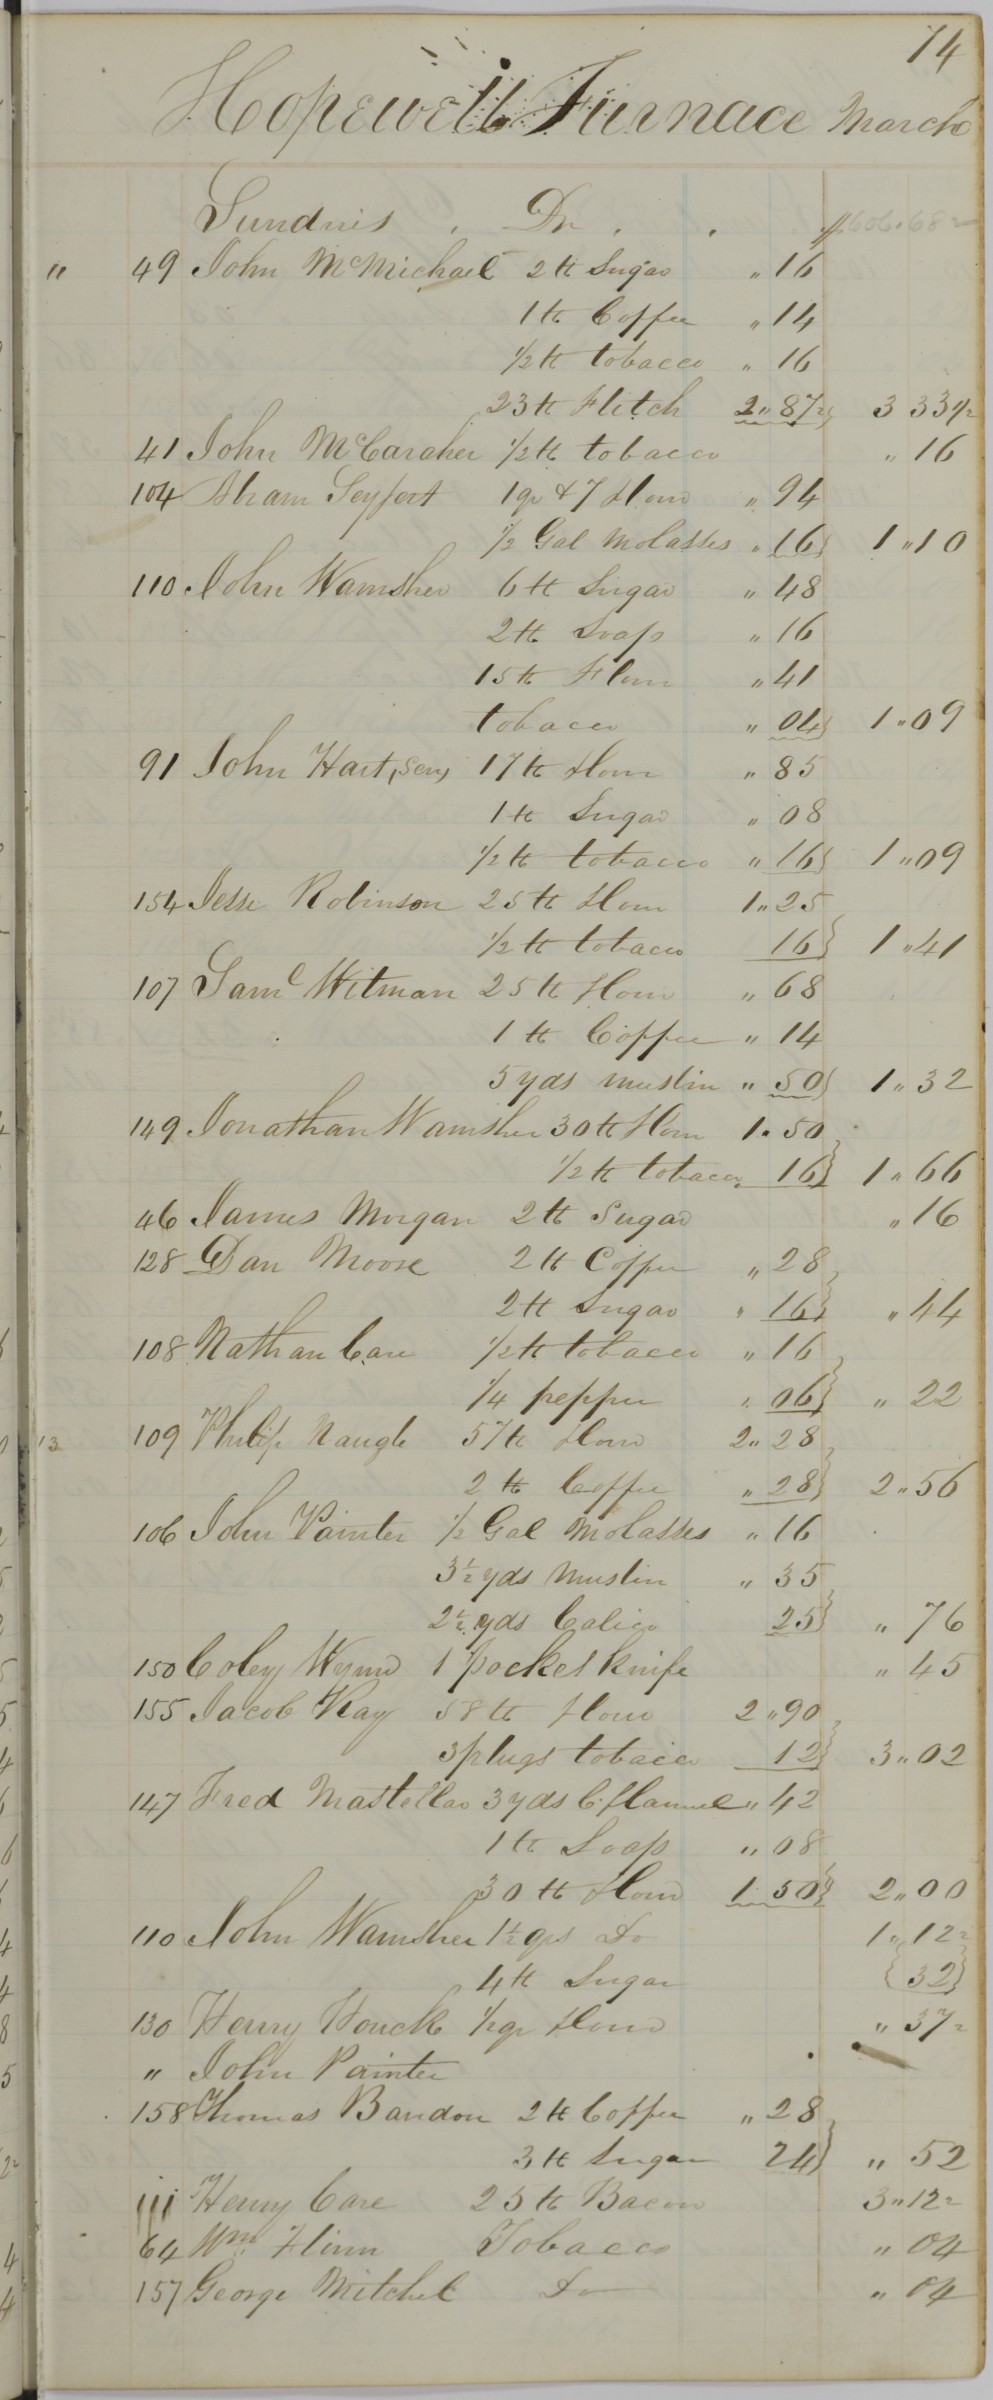 74
Hopewell Furnace March
Sundries . Dr . . $606.68 2
" 49 John McMichael 2 lb Sugar " 16
1 lb Coffee " 14
1/2 lb tobacco " 16
23 lb Flitch 2 " 87 1/2 3 33 1/2
41 John McCaraher 1/2 lb tobacco " 16
104 Abram Seyfert 1 qr & 7 Flour " 94
1/2 Gal Molasses " 16 1 " 10
110 John Wamsher 6 lb Sugar " 48
2 lb Soap " 16
15 lb Flour " 41
tobacco " 04 1 " 09
91 John Hart, Sen, 17 lb Flour " 85
1 lb Sugar " 08
1/2 lb tobacco " 16 1 " 09
154 Jesse Robinson 25 lb Flour 1 " 25
1/2 lb tobacco 16 1 " 41
107 Saml Witman 25 lb Flour " 68
1 lb Coffee " 14
5 yds muslin " 50 1 " 32
149 Jonathan Wamsher 30 lb Flour 1 " 50
1/2 lb tobacco 16 1 " 66
46 James Morgan 2 lb Sugar " 16
128 Dan Moore 2 lb Coffee " 28
2 lb Sugar " 16 " 44
108 Nathan Care 1/2 lb tobacco " 16
1/4 pepper " 06 " 22
13 109 Philip Naugle 57 lb Flour 2 " 28
2 lb Coffee " 28 2 " 56
106 John Painter 1/2 Gal Molasses " 16
3 1/2 yds Muslin " 35
2 1/2 yds Calico 25 " 76
150 Coley Wynn 1 Pocket knife " 45
155 Jacob Kay 58 lb Flour 2 " 90
3 plugs tobacco 12 3 " 02
147 Fred Mastellar 3 yds C. flannel " 42
1 lb Soap " 08
30 lb Flour 1 50 2 " 00
110 John Wamsher 1 1/2 qrs Do 1 " 12 2
4 lb Sugar {32}
130 Henry Houck 1/2 qr Flour " 37 2
" John Painter
158 Thomas Bandon 2 lb Coffee " 28
3 lb Sugar 24 " 52
111 Henry Care 25 lb Bacon 3 " 12 2
64 Wm Flinn Tobacco " 04
157 George Mitchel Do " 04